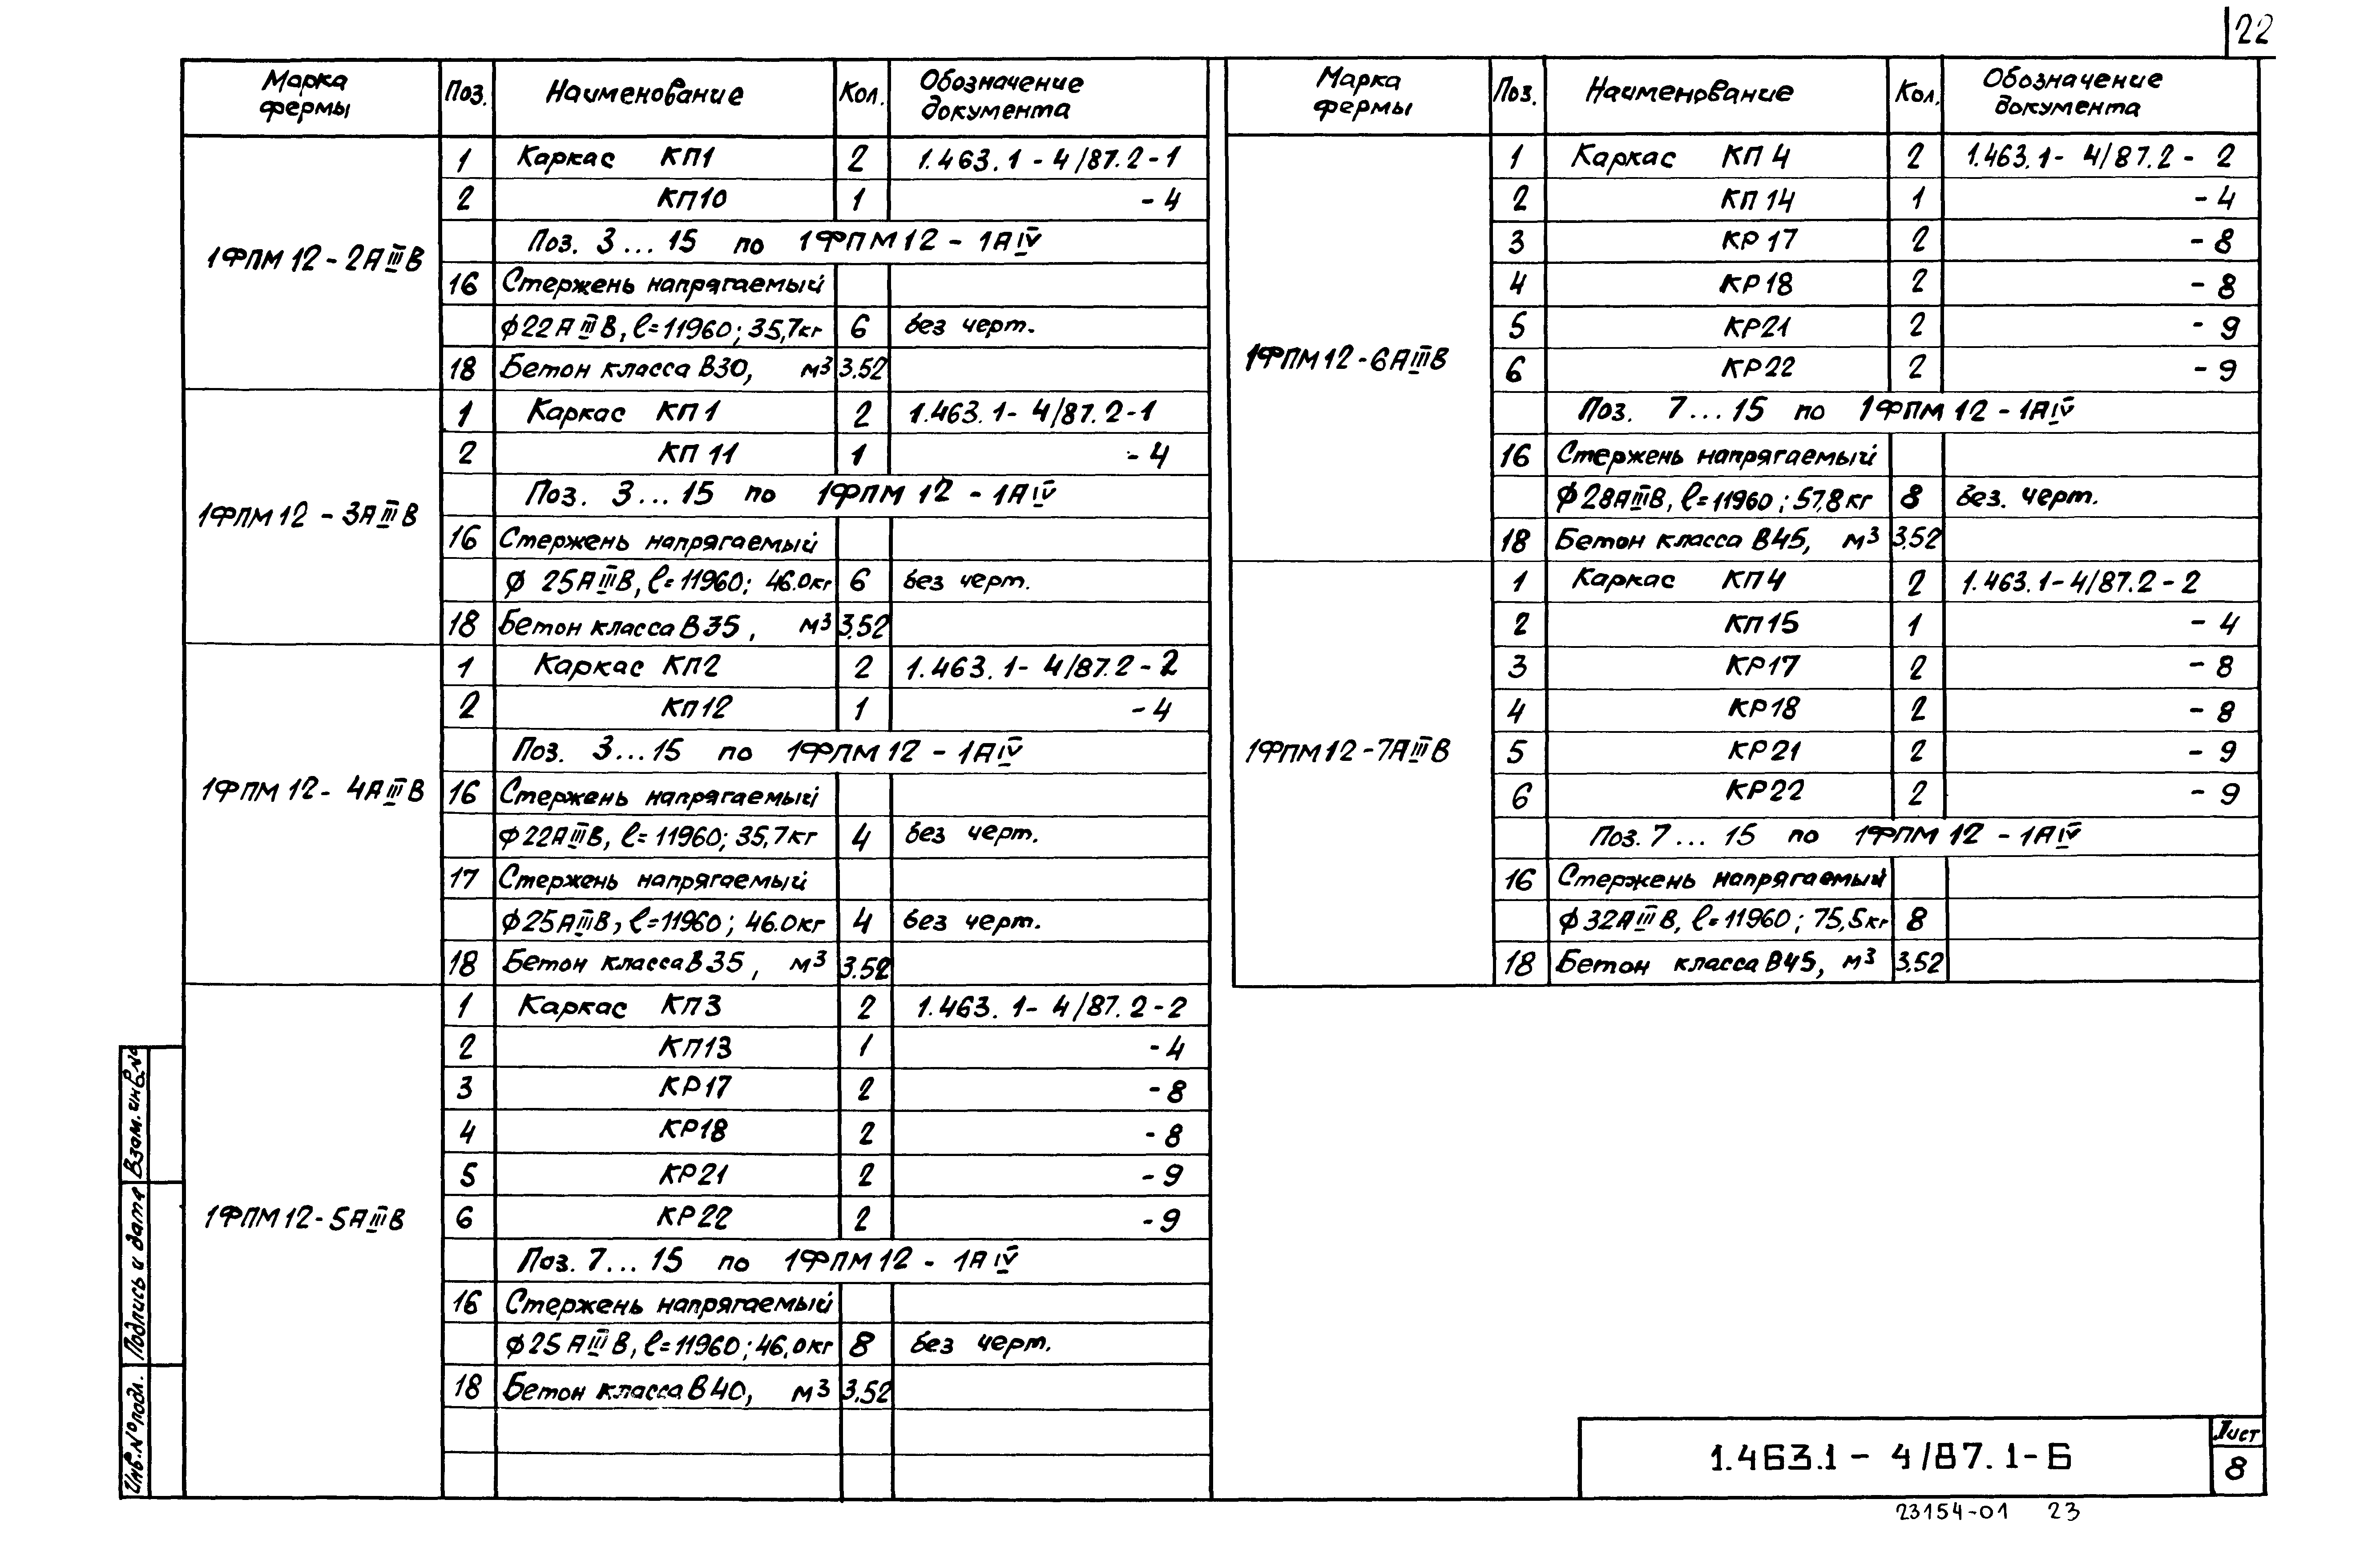 22
Марка фермы Поз. Наименование Кол. Обозначение документа
1ФПМ12-2АIIIВ
1 Каркас КП1 2 1.463.1-4/87.2-1
2 КП10 1 -4
Поз. 3...15 по 1ФПМ12-1АIV
16 Стержень напрягаемый
ϕ22АIIIВ, ℓ=11960; 35,7кг 6 без черт.
18 Бетон класса В30, м³ 3.52
1ФПМ12-3АIIIВ
1 Каркас КП1 2 1.463.1-4/87.2-1
2 КП11 1 -4
Поз. 3...15 по 1ФПМ12-1АIV
16 Стержень напрягаемый
ϕ25АIIIВ, ℓ=11960; 46.0кг 6 без черт.
18 Бетон класса В35, м³ 3.52
1ФПМ12-4АIIIВ
1 Каркас КП2 2 1.463.1-4/87.2-2
2 КП12 1 -4
Поз. 3...15 по 1ФПМ12-1АIV
16 Стержень напрягаемый
ϕ22АIIIВ, ℓ=11960; 35,7кг 4 без черт.
17 Стержень напрягаемый
ϕ25АIIIВ, ℓ=11960; 46.0кг 4 без черт.
18 Бетон класса В35, м³ 3.52
1ФПМ12-5АIIIВ
1 Каркас КП3 2 1.463.1-4/87.2-2
2 КП13 1 -4
3 КР17 2 -8
4 КР18 2 -8
5 КР21 2 -9
6 КР22 2 -9
Поз. 7...15 по 1ФПМ12-1АIV
16 Стержень напрягаемый
ϕ25АIIIВ, ℓ=11960; 46.0кг 8 без черт.
18 Бетон класса В40, м³ 3.52
Марка фермы Поз. Наименование Кол. Обозначение документа
1ФПМ12-6АIIIВ
1 Каркас КП4 2 1.463.1-4/87.2-2
2 КП14 1 -4
3 КР17 2 -8
4 КР18 2 -8
5 КР21 2 -9
6 КР22 2 -9
Поз. 7...15 по 1ФПМ12-1АIV
16 Стержень напрягаемый
ϕ28АIIIВ, ℓ=11960; 57,8кг 8 без. черт.
18 Бетон класса В45, м³ 3.52
1ФПМ12-7АIIIВ
1 Каркас КП4 2 1.463.1-4/87.2-2
2 КП15 1 -4
3 КР17 2 -8
4 КР18 2 -8
5 КР21 2 -9
6 КР22 2 -9
Поз. 7...15 по 1ФПМ12-1АIV
16 Стержень напрягаемый
ϕ32АIIIВ, ℓ=11960; 75,5кг 8
18 Бетон класса В45, м³ 3.52
Взам. инв.№
Подпись и дата
Инв.№ подл.
1.463.1-4/87.1-Б
Лист
8
23154-01 23